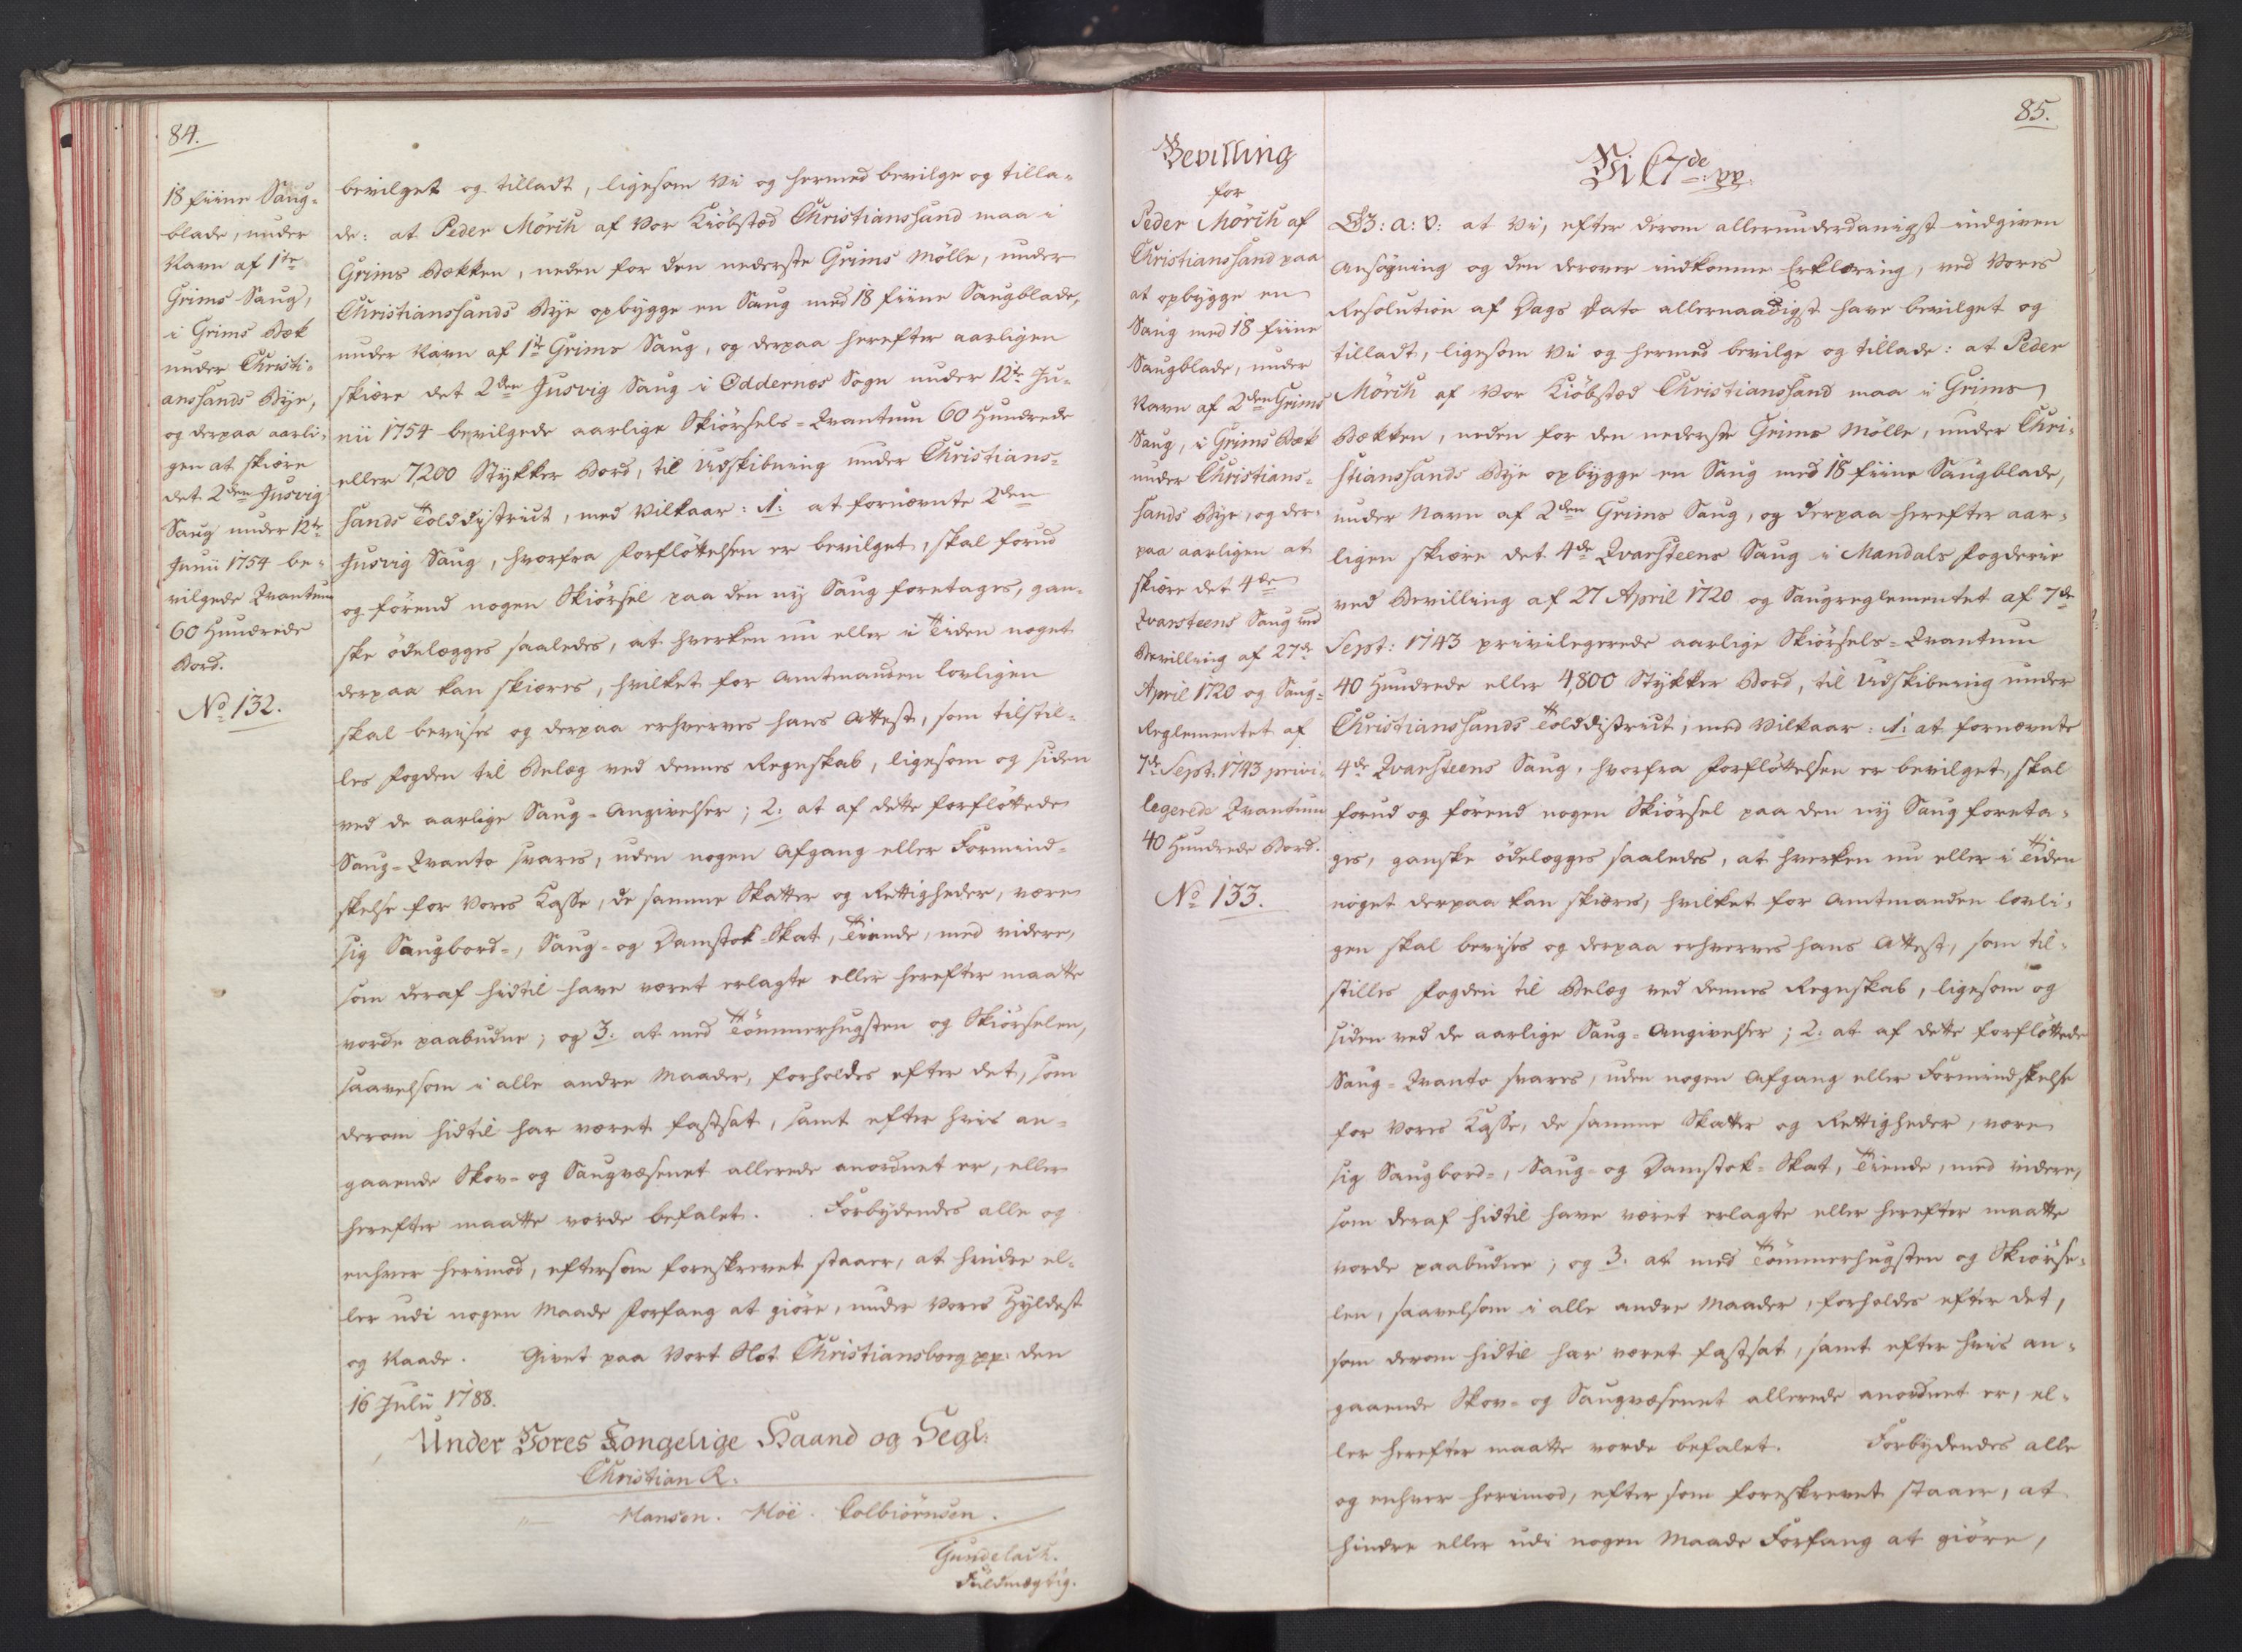 84.
18 fiine Saug-
blade, under
Navn af 1te
Grims Saug,
i Grims Bæk
under Christi-
anssands Bÿe,
og derpaa aarli-
gen at skiære
det 2den Jusvig
Saug under 12te
Junii 1754 be-
vilgede Qvantum
60 Hundrede
Bord.
No 132.
bevilget og tilladt, ligesom Vi og hermed bevilge og tilla-
de: at Peder Mörch af Vor Kiöbstæd Christianssand maa i
Grims Bækken, neden for den nederste Grims Mölle, under
Christianssands Bÿe opbÿgge en Saug med 18 fiine Saugblade,
under Navn af 1te Grims Saug, og derpaa herefter aarligen
skiære det 2den Jusvig Saug i Oddernes Sogn under 12te Ju-
nii 1754 bevilgede aarlige Skiörsels-Qvantum 60 Hundrede
eller 7,200 Stÿkker Bord, til Udskibning under Christians-
sands Tolddistrict, med Vilkaar: 1: at fornævnte 2den
Jusvig Saug, hvorfra Forflöttelsen er bevilget, skal forud
og förend nogen Skiörsel paa den nÿ Saug foretages, gan-
ske ödelægges saaledes, at hverken nu eller i Tiden noget
derpaa kan skiæres, hvilket for Amtmanden lovligen
skal bevises og derpaa erhverves hans Attest, som tilstil-
les Fogden til Belæg ved dennes Regnskab, ligesom og siden
ved de aarlige Saug-Angivelser; 2. at af dette forflöttede
Saug-Qvanto svares, uden nogen Afgang eller Formind-
skelse for Vores Kasse, de samme Skatter og Rettigheder, være
sig Saugbord-, Saug- og Damstok-Skat, Tiende, med videre,
som deraf hidtil have været erlagte eller herefter maatte
vorde paabudne; og 3. at med Tömmerhugsten og Skiörselen,
saavelsom i alle andre Maader, forholdes efter det, som
derom hidtil har været fastsat, samt efter hvis an-
gaaende Skov- og Saugvæsenet allerede anordnet er, eller
herefter maatte vorde befalet. Forbÿdendes alle og
enhver herimod, eftersom foreskrevet staaer, at hindre el-
ler udi nogen Maade Forfang at giöre, under Vores Hÿldest
og Naade. Givet paa Vort Slot Christiansborg pp: den
16 Julii 1788.
Under Vores Kongelige Haand og Segl.
Christian R.
Hansen. Moë. Colbiörnsen.
Gundelach.
Fuldmægtig.
85.
Bevilling
for
Peder Mörch af
Christianssand paa
at opbÿgge en
Saug med 18 fiine
Saugblade, under
Navn af 2den Grims
Saug, i Grims Bæk
under Christians-
sands Bÿe, og der-
paa aarligen at
skiære det 4de
Qvarsteens Saug ved
Bevilling af 27de
April 1720 og Saug-
Reglementet af
7de Sept: 1743 privi-
legerede Qvantum
40 Hundrede Bord.
No 133.
Vi C 7de: pp:
G: a: V: at Vi, efter derom allerunderdanigst indgiven
Ansögning og den derover indkomne Erklæring, ved Vores
Resolution af Dags Dato allernaadigst have bevilget og
tilladt, ligesom Vi og hermed bevilge og tillade: at Peder
Mörch af Vor Kiöbstæd Christianssand maa i Grims
Bækken, neden for den nederste Grims Mölle, under Chri-
stianssands Bÿe opbÿgge en Saug med 18 fiine Saugblade,
under Navn af 2den Grims Saug, og derpaa herefter aar-
ligen skiære det 4de Qvarsteens Saug i Mandals Fogderie
ved Bevilling af 27 April 1720 og Saugreglementet af 7de
Sept: 1743 privilegerede aarlige Skiörsels-Qvantum
40 Hundrede eller 4,800 Stÿkker Bord, til Udskibning under
Christianssands Tolddistrict, med Vilkaar: 1: at fornævnte
4de Qvarsteens Saug, hvorfra Forflöttelsen er bevilget, skal
forud og förend nogen Skiörsel paa den nÿ Saug foreta-
ges, ganske ödelægges saaledes, at hverken nu eller i Tiden
noget derpaa kan skiæres, hvilket for Amtmanden lovli-
gen skal bevises og derpaa erhverves hans Attest, som til-
stilles Fogden til Belæg ved dennes Regnskab, ligesom og
siden ved de aarlige Saug-Angivelser; 2. at af dette forflöttede
Saug-Qvanto svares, uden nogen Afgang eller Formindskelse
for Vores Kasse, de samme Skatter og Rettigheder, være
sig Saugbord-, Saug- og Damstok-Skat, Tiende, med videre,
som deraf hidtil have været erlagte eller herefter maatte
vorde paabudne; og 3. at med Tömmerhugsten og Skiörse-
len, saavelsom i alle andre Maader, forholdes efter det,
som derom hidtil har været fastsat, samt efter hvis an-
gaaende Skov- og Saugvæsenet allerede anordnet er, el-
ler herefter maatte vorde befalet. Forbÿdendes alle
og enhver herimod, efter som foreskrevet staaer, at
hindre eller udi nogen Maade Forfang at giöre,